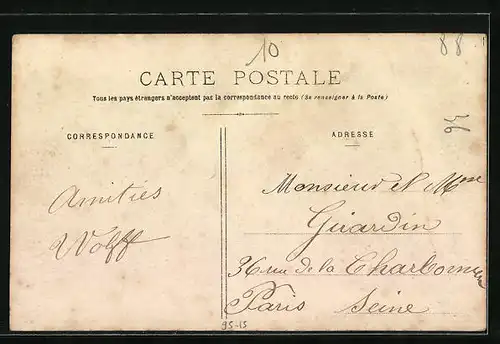 10
88
CARTE POSTALE
Tous les pays étrangers n'acceptent pas la correspondance au recto (Se renseigner à la Poste)
CORRESPONDANCE
ADRESSE
Amitiés
Wolff
Monsieur et Mme
Girardin
36 rue de la Charbonnière
Paris Seine
95-15